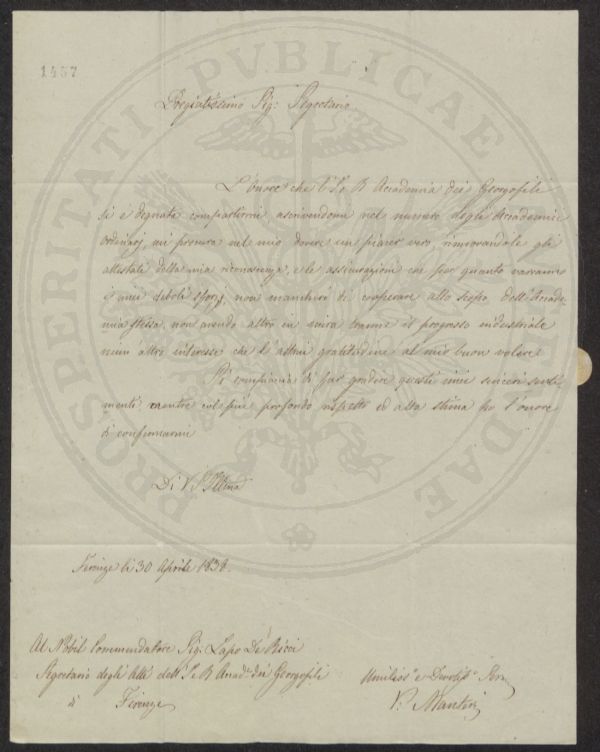 1457
PROSPERITATI PVBLICAE
Pregiatissimo Sig: Segretario
L'onore che l'I. e R. Accademia dei Georgofili
si è degnata compartirmi ascrivendomi nel numero degli Accademici
Ordinarj, mi procura nel mio dovere un piacer vero, rinnovandole gli
attestati della mia riconoscenza, e le assicurazioni che per quanto varranno
i miei deboli sforzi, non mancherò di cooperare allo scopo dell'Accade-
mia stessa, non avendo altro in mira tranne il progresso industriale
niun altro interesse che l'altrui gratitudine al mio buon volere.
Si compiaccia di far gradire questi miei sinceri senti-
menti mentre col più profondo rispetto ed alta stima ho l'onore
di confermarmi
Di V. S. Illma
Firenze li 30 Aprile 1838.
Al Nobil Commendatore Sig. Lapo De Ricci
Segretario degli Atti dell'I. e R. Accad. dei Georgofili
Firenze
Umiliss. e Devotiss. Serv.
V. Manteri